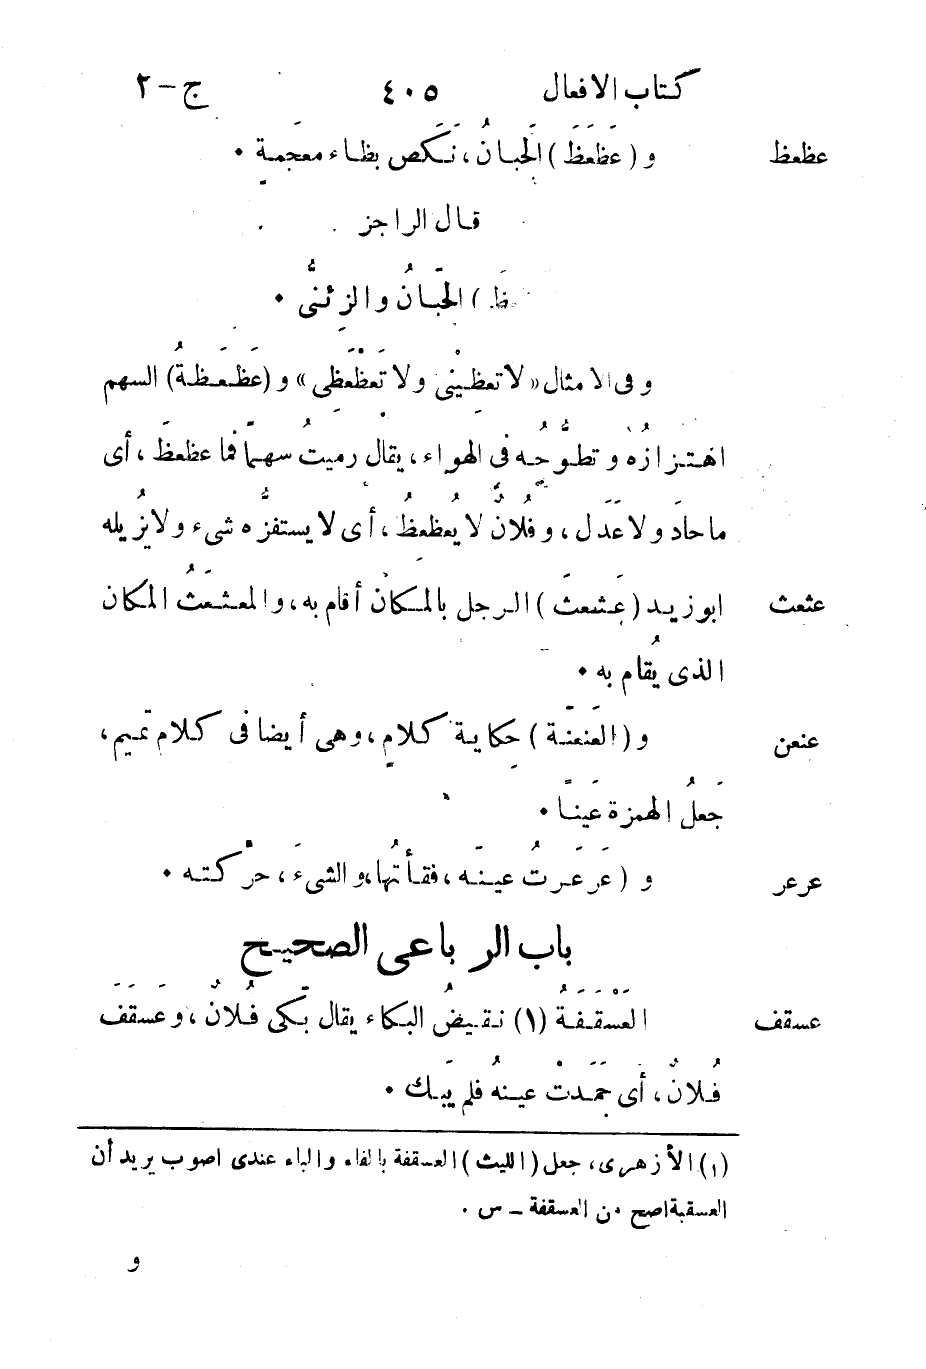 كتاب الافعال ٤٠٥ ج-٢
عظعظ و (عَظعَظَ) الجَبانُ، نَكَص بظاء معجَمِة •
قال الراجز
ظَ) الجَبانُ والزِئنىُّ •
وفى الامثال «لا تعِظيْنى ولا تَعَظْعَظِى» و (عَظعَظةُ) السهم
اهتزازُه وتطوُّحُه فى الهواء، يقال رميتُ سهمًا فما عظعظَ، أى
ماحادَ ولاعَدَل، وفلانٌ لايُعظعظُ، أى لايستفزُّه شىء ولايُزيله
عثعث ابوزيد (عَثعثَ) الرجل بالمكان أقام به، والمعثعَثُ المكان
الذى يُقام به •
عنعن و (العَنعنَة) حِكاية كلامٍ، وهى أيضا فى كلام تَميم،
جَعلُ الهمزة عَينًا •
عرعر و (عَرعَرتُ عينَه، فقأتُها، والشىءَ، حرْكته •
باب الرباعى الصحيح
عسقف العَسْقَفَةُ (١) نقيضُ البكاء يقال بَكى فُلانٌ، وعَسقَفَ
فُلانٌ، أى جَمَدتْ عينهُ فلم يَبك •
(١) الأزهرى، جعل (الليث) العسقفة بالفاء والباء عندى اصوب يريد أن
العسقبة اصح من العسقفة – س •
و